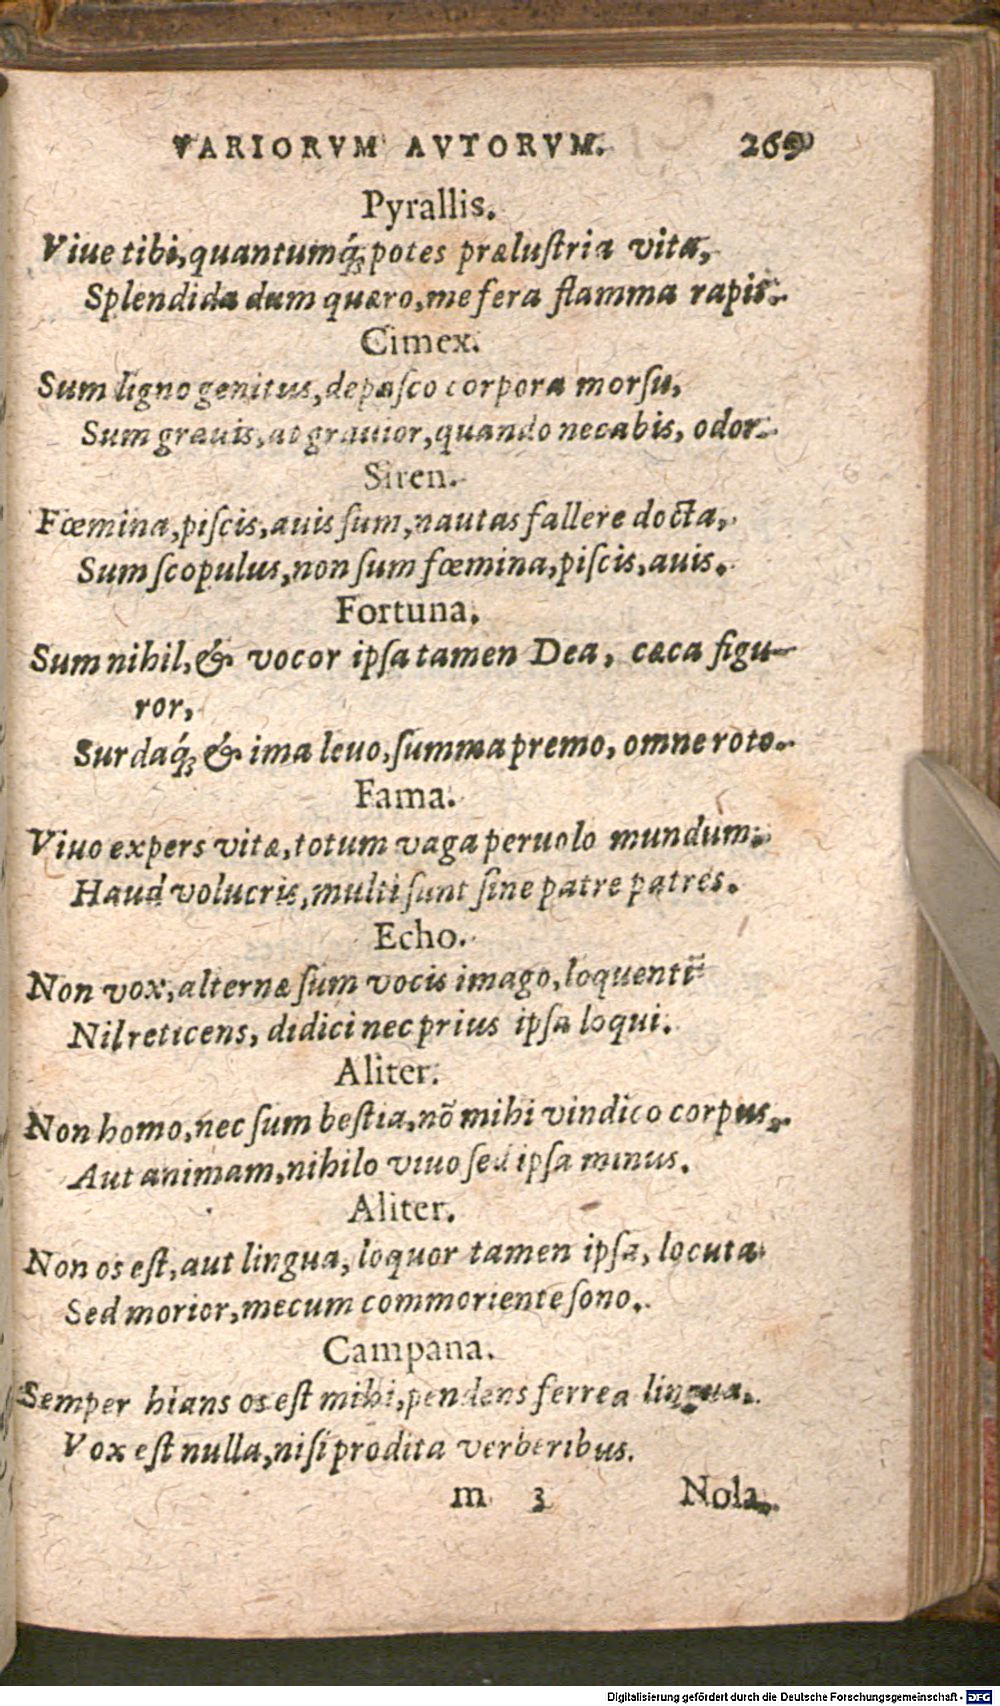 VARIORVM AVTORVM. 269
Pyrallis.
Viue tibi, quantumq́; potes præluſtria vita,
Splendida dum quæro, me fera flamma rapit.
Cimex.
Sum ligno genitus, depaſco corpora morſu,
Sum grauis, at grauior, quando necabis, odor.
Siren.
Fœmina, piſcis, auis ſum, nautas fallere docta,
Sum ſcopulus, non ſum fœmina, piſcis, auis.
Fortuna.
Sum nihil, & vocor ipſa tamen Dea, cæca figu-
ror,
Surdaq́; & ima leuo, ſumma premo, omne roto.
Fama.
Viuo expers vitæ, totum vaga peruolo mundum:
Haud volucris, multi ſunt ſine patre patres.
Echo.
Non vox, alternæ ſum vocis imago, loquenti
Nil reticens, didici nec prius ipſa loqui.
Aliter.
Non homo, nec ſum beſtia, nõ mihi vindico corpus,
Aut animam, nihilo viuo ſed ipſa minus.
Aliter.
Non os eſt, aut lingua, loquor tamen ipſa, locuta
Sed morior, mecum commoriente ſono.
Campana.
Semper hians os eſt mihi, pendens ferrea lingua.
Vox eſt nulla, niſi prodita verberibus.
m 3 Nola.
Digitalisierung gefördert durch die Deutsche Forschungsgemeinschaft - DFG